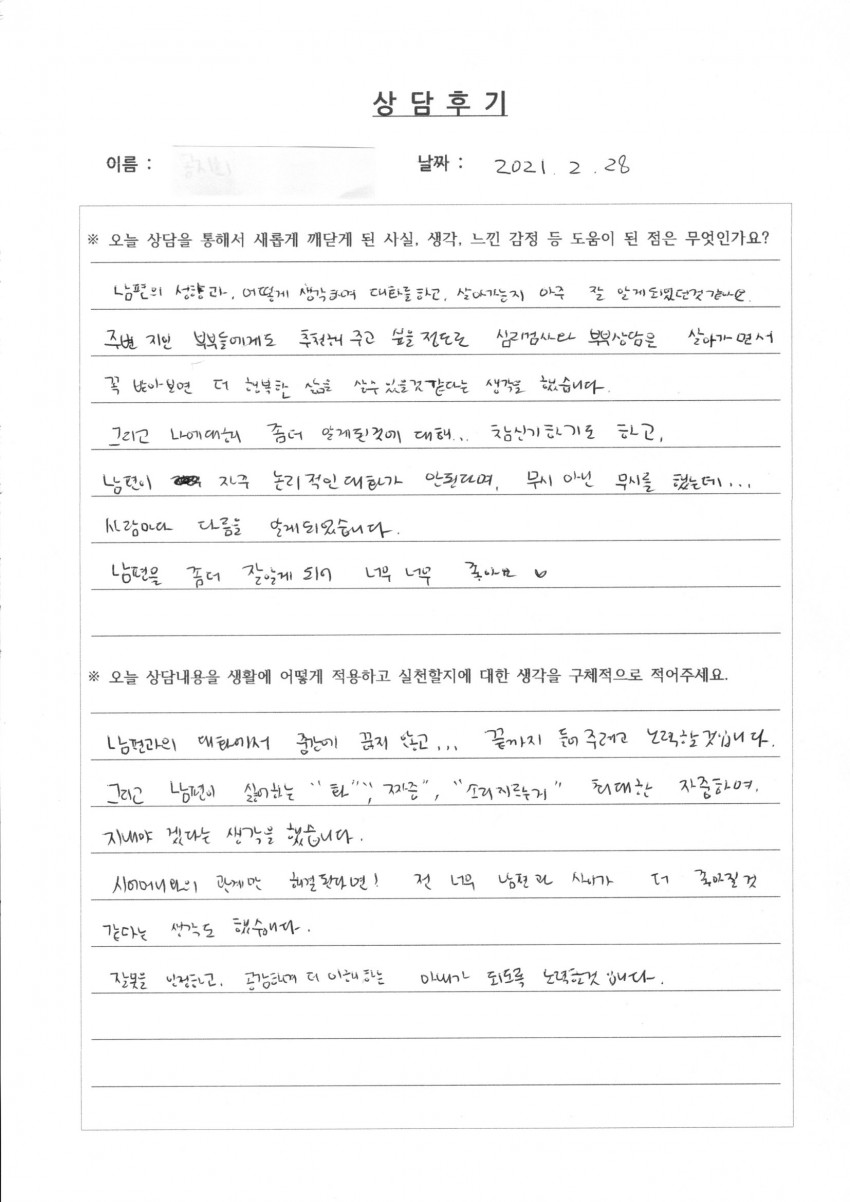 상 담 후 기
이름 :
날짜 : 2021. 2. 28
※ 오늘 상담을 통해서 새롭게 깨닫게 된 사실, 생각, 느낀 감정 등 도움이 된 점은 무엇인가요?
남편의 성향과, 어떻게 생각하며 대화를하고, 살아가는지 아주 잘 알게되었던것 같아요.
주변 지인 부부들에게도 추천해 주고 싶을정도로 심리검사와 부부상담은 살아가면서
꼭 받아보면 더 행복한 삶을 살수있을것같다는 생각을 했습니다.
그리고 나에대해 좀더 알게된것에 대해... 참신기하기도 하고,
남편이 자주 논리적인대화가 안된다며, 무시 아닌 무시를 했는데...
사람마다 다름을 알게되었습니다.
남편을 좀더 잘알게 되어 너무 너무 좋아요
※ 오늘 상담내용을 생활에 어떻게 적용하고 실천할지에 대한 생각을 구체적으로 적어주세요.
남편과의 대화에서 중간에 끊지 않고... 끝까지 들어주려고 노력할것입니다.
그리고 남편이 싫어하는 "화", "짜증", "소리지르는거" 최대한 자중하며,
지내야 겠다는 생각을 했습니다.
시어머니와의 관계만 해결된다면! 전 너무 남편과 사이가 더 좋아질것
같다는 생각도 했습니다.
잘못을 인정하고, 공감하며 더 이해하는 아내가 되도록 노력할것 입니다.